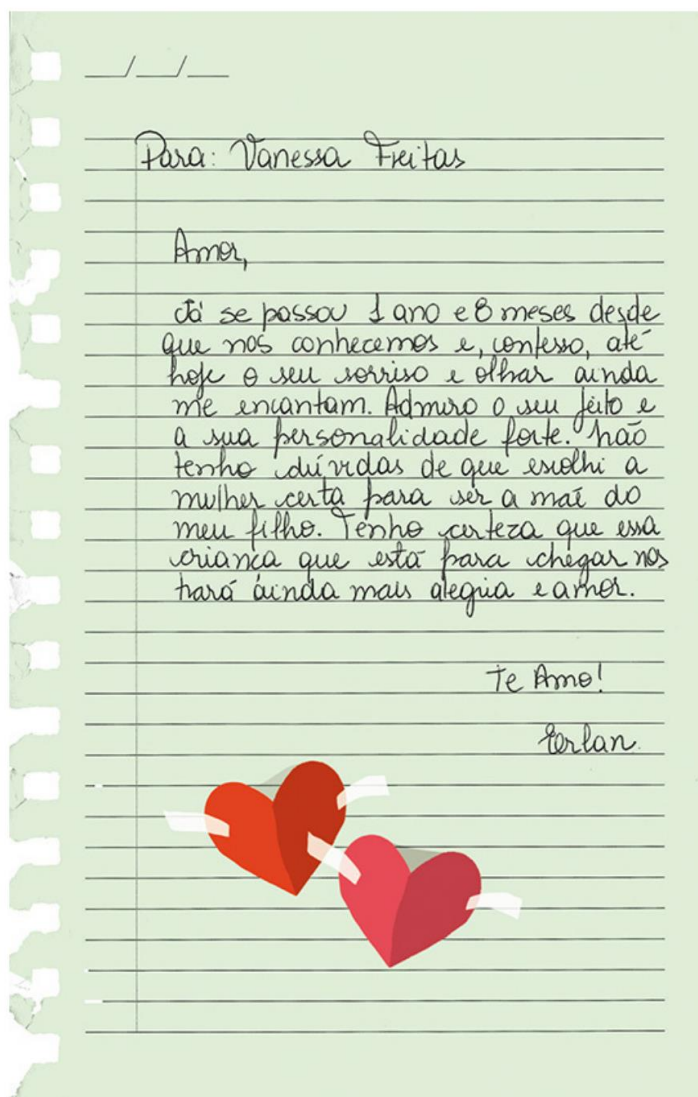 __/__/__
Para: Vanessa Freitas
Amor,
Já se passou 1 ano e 8 meses desde
que nos conhecemos e, confesso, até
hoje o seu sorriso e olhar ainda
me encantam. Admiro o seu jeito e
a sua personalidade forte. Não
tenho dúvidas de que escolhi a
mulher certa para ser a mãe do
meu filho. Tenho certeza que essa
criança que está para chegar nos
trará ainda mais alegria e amor.
Te Amo!
Erlan.